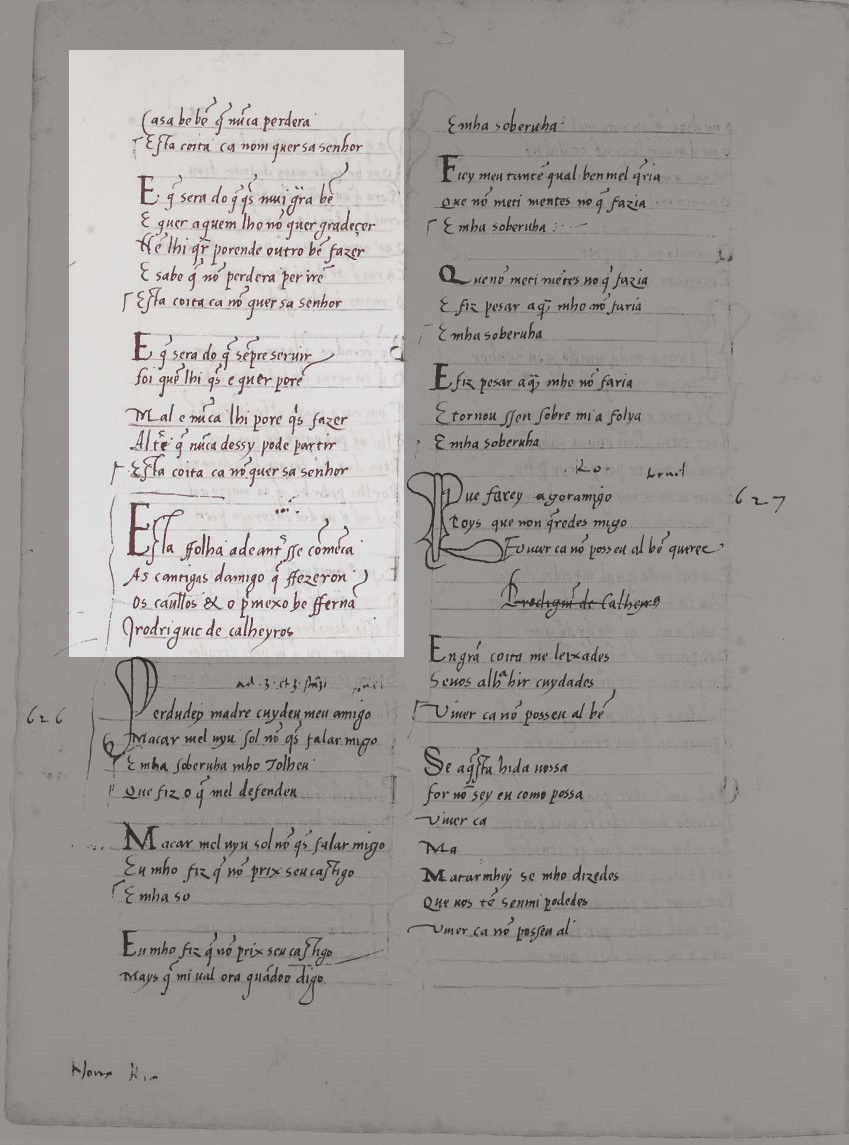 Casa be bẽ q̃ nũca perdera
Esta coita ca nom quer sa senhor
E q̃ sera do q̃ q̃s mui grã bẽ
E quer a quem lho nõ quer gradeçer
Nẽ lhi q̃r porende outro bẽ fazer
E sabe q̃ nõ perdera per irẽ
Esta coita ca nõ quer sa senhor
E q̃ sera do q̃ sẽpre seruir
foi quẽ lhi q̃s e quer porẽ
Mal e nũca lhi pore q̃s fazer
Al tẽ q̃ nũca dessy pode partir
Esta coita ca nõ quer sa senhor
Esta ffolha adeant̃ sse começa
As cantigas damigo q̃ ffezeron
os caualros & o p̃mexo he ffernã
rodriguic de calheyros
626
Perdudej madre cuydeu meu amigo
Macar mel uyu sol nõ q̃s falar migo
E mha soberuha mho Tolheu
Que fiz o q̃ mel defendeu
Macar mel uyu sol nõ q̃s falar migo
Eu mho fiz q̃ nõ prix seu castigo
E mha so
Eu mho fiz q̃ nõ prix seu castigo
Mays q̃ mi ual ora quãdoo digo
E mha soberuha
Fiey meu tantẽ qual ben mel q̃ria
Que nõ meti mentes no q̃ fazia
E mha soberuha
Que nõ meti mẽtes no q̃ fazia
E fiz pesar a q̃ mho nõ faria
E mha soberuha
E fiz pesar aq̃ mho nõ faria
E tornou ssen sobre mi a folya
E mha soberuha
627
Que farey agoramigo
Poys que non q̃redes migo
Viuer ca nõ posseu al bẽ querer
Rodriguiz de Calheyros
En grã coita me leixades
Seuos alhᵃ hir cuydades
Viuer ca nõ posseu al bẽ
Se aq̃sta hida uossa
for nõ sey eu como possa
Viuer ca
Ma
Matarmhey se mho dizedes
Que uos tẽ senmi podedes
Viuer ca nõ posseu al